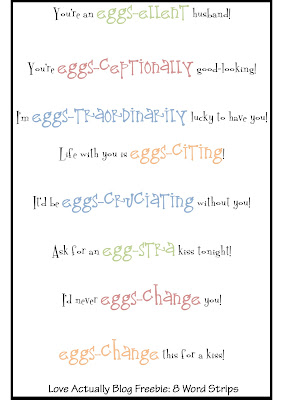 You're an eggs-ellent husband!
You're eggs-ceptionally good-looking!
I'm eggs-traordinarily lucky to have you!
Life with you is eggs-citing!
It'd be eggs-cruciating without you!
Ask for an egg-stra kiss tonight!
I'd never eggs-change you!
eggs-change this for a kiss!
Love Actually Blog Freebie: 8 Word Strips